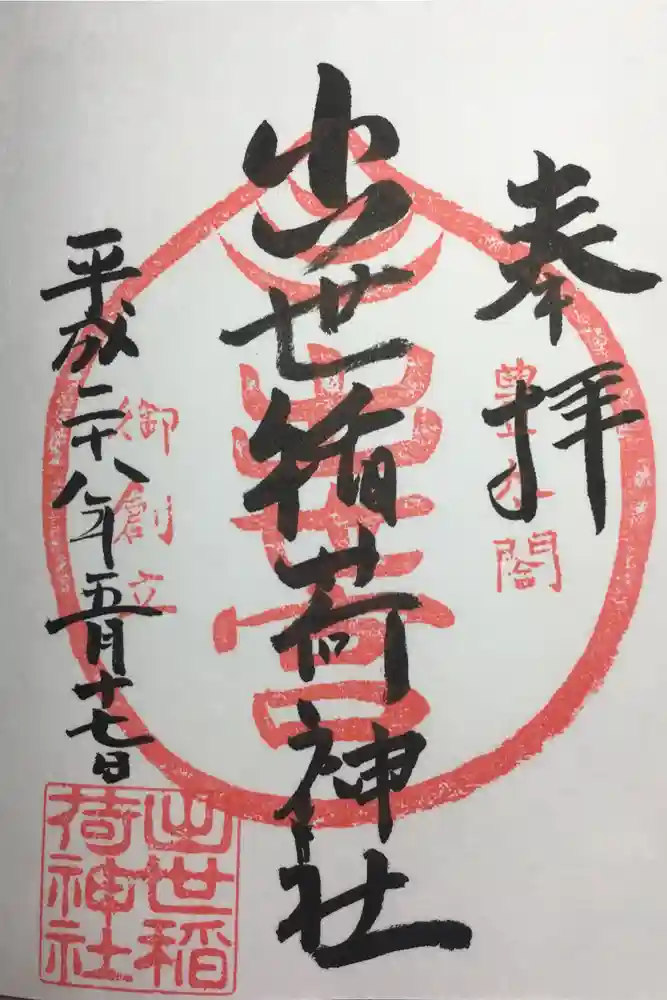 奉拝
豊水閣
出世稲荷神社
出世宮
御創立
平成二十八年五月十七日
出世稲
荷神社